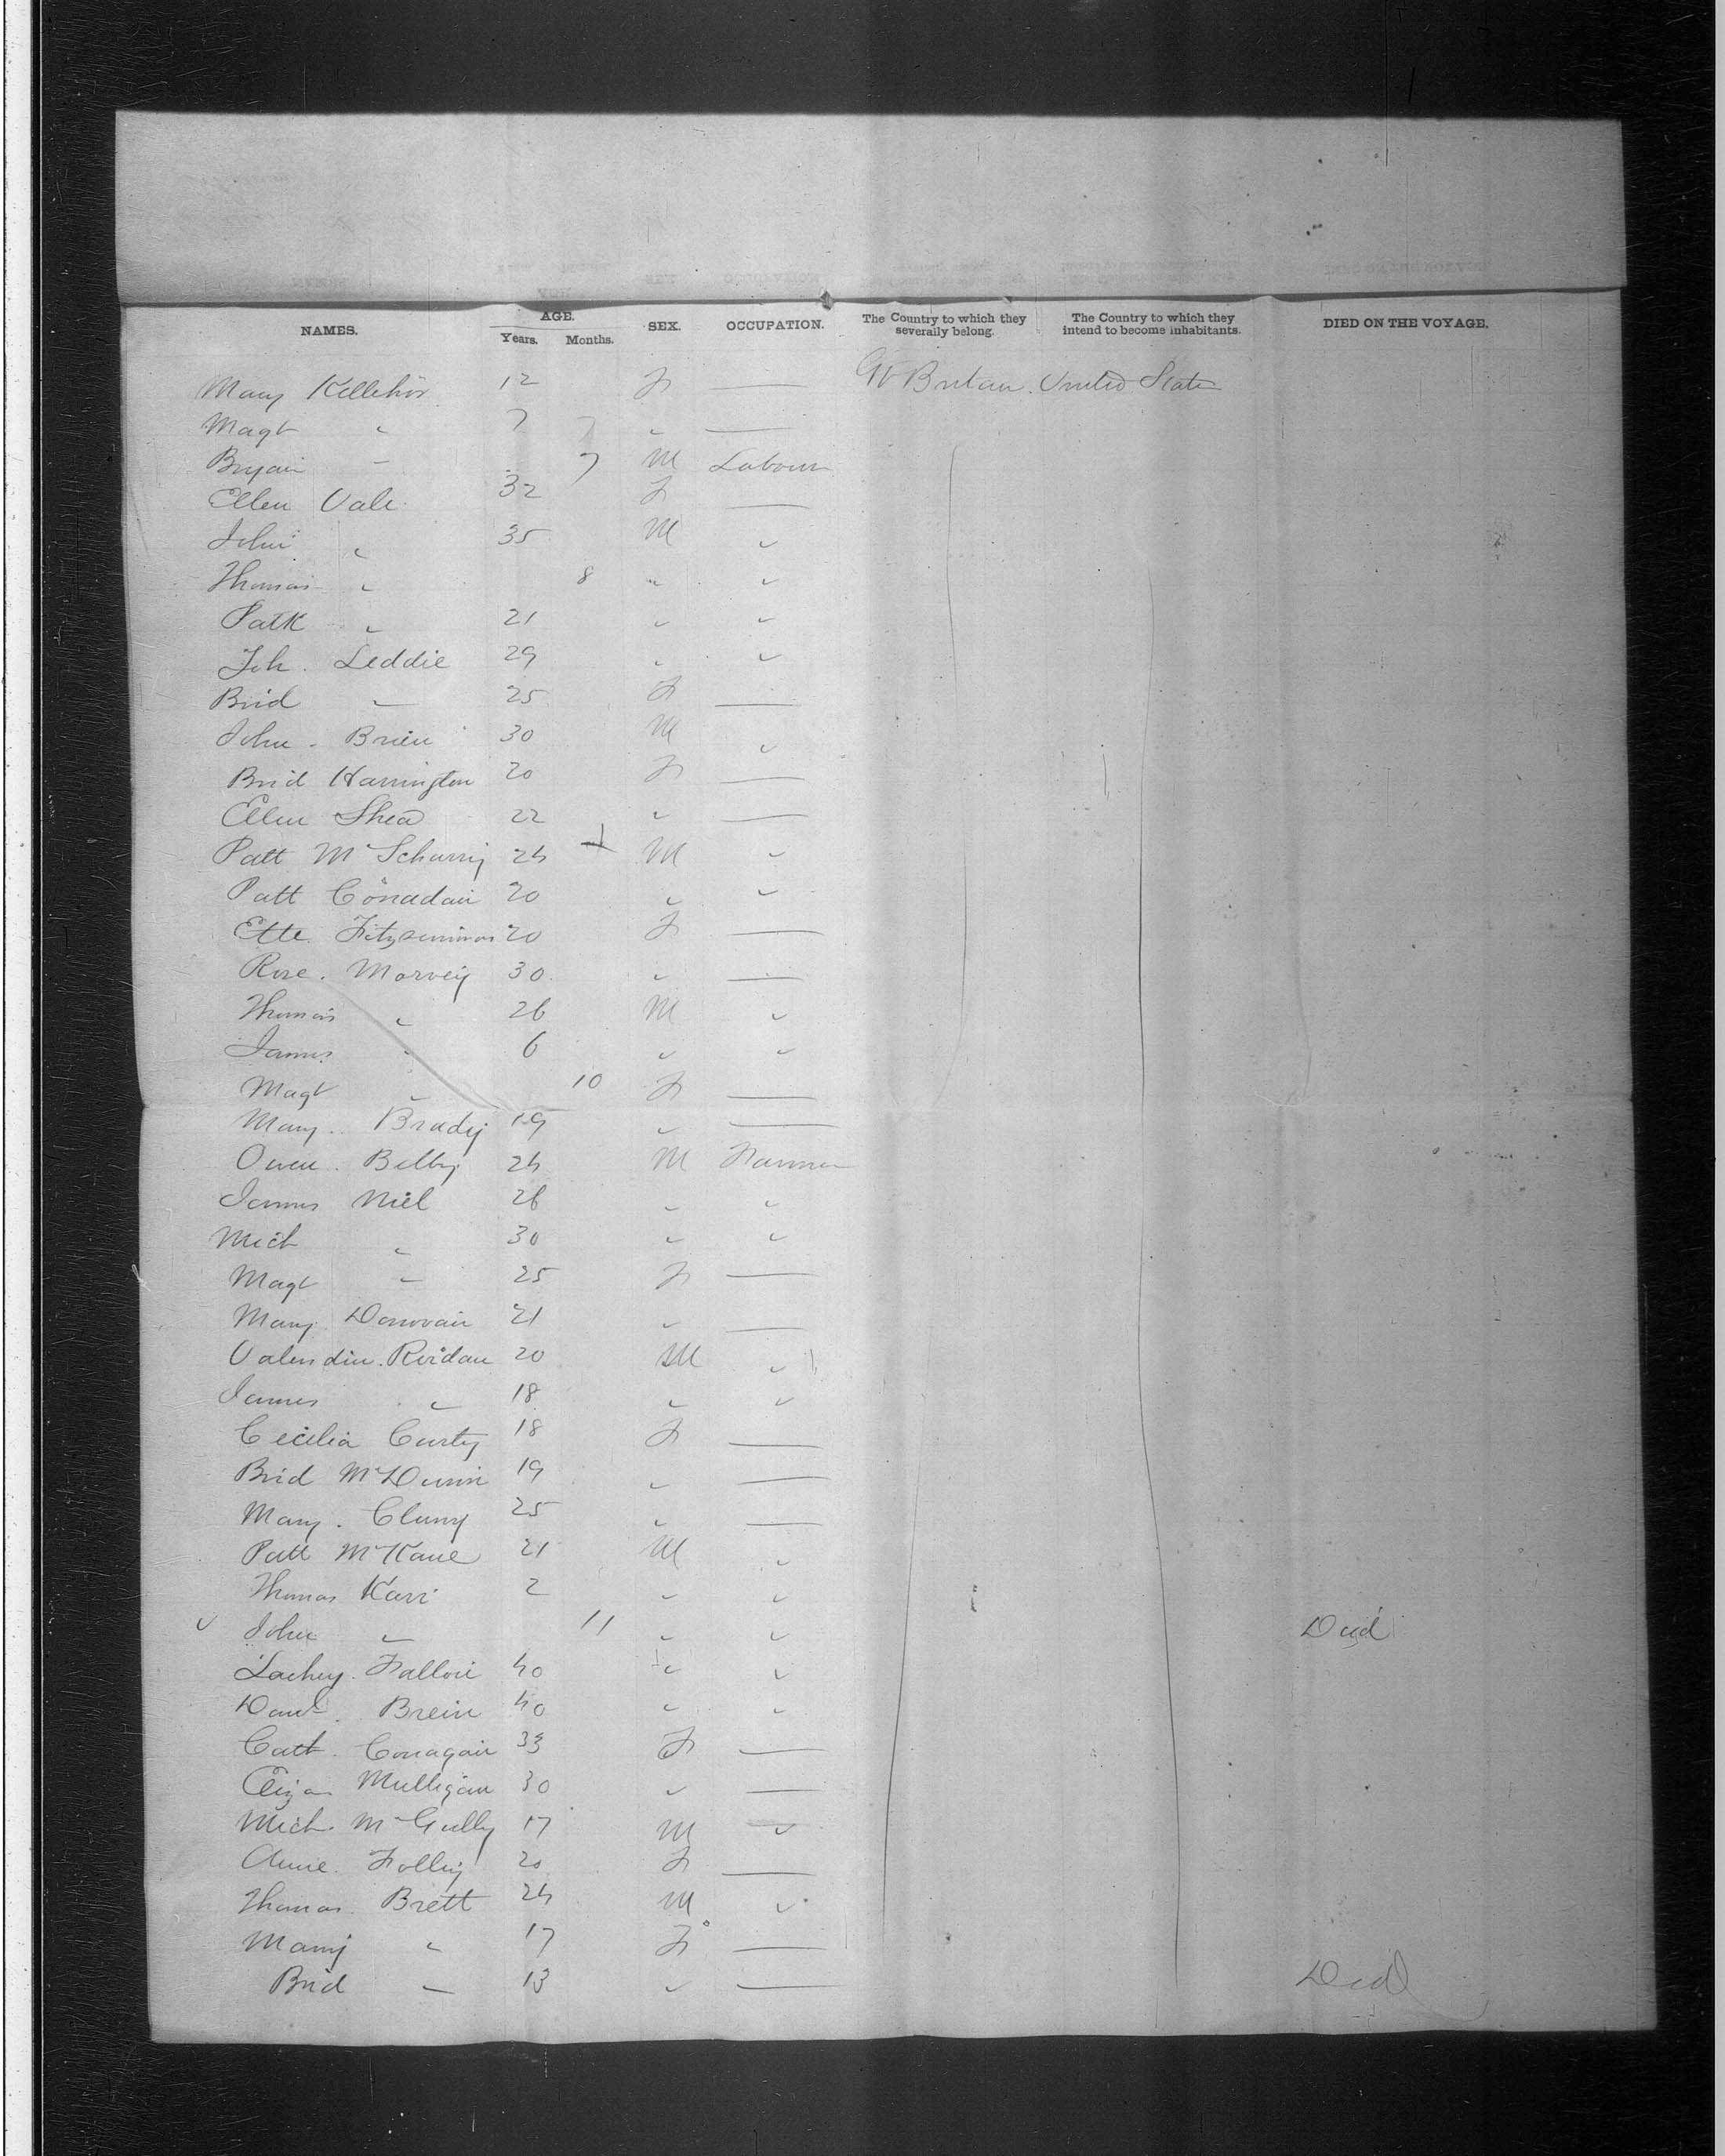 NAMES. AGE. Years. Months. SEX. OCCUPATION. The Country to which they severally belong. The Country to which they intend to become inhabitants. DIED ON THE VOYAGE.
Mary Kellehor 12 F — Gt Britain. United State
Magt " 7 " —
Bryan " 7 M Labour
Ellen Vale 32 F —
John " 35 M "
Thomas " 8 " "
Patk " 21 " "
Joh. Leddie 29 " "
Brid " 25 F —
John. Brien 30 M "
Brid Harrington 20 F —
Ellen Shea 22 " —
Patt 24 M "
Patt Conadain 20 " "
Fitzsimmons 20 F —
Rose. Morvey 30 " —
Thomas " 26 M "
James " 6 " "
Magt " 10 F —
Mary. Brady 19 " —
Owen. Belby 24 M Farmer
James Niel 26 " "
Mich " 30 " "
Magt " 25 F —
Mary. Donovan 21 " —
Valendin. Riordan 20 M "
James " 18 " "
Cecilia Curty 18 F —
Brid McDunn 19 " —
Mary. Cluny 25 " —
Patt McKane 21 M "
Thomas Karr 2 " "
John " 11 " " Died
Lachy. Fallon 40 " "
Danl. Brein 40 " "
Cath. Conagan 33 F —
Eliza Mulligan 30 " —
Mich. McGully 17 M "
Anne. Folley 20 F —
Thomas. Brett 24 M "
Mary " 17 F —
Brid " 13 " — Died